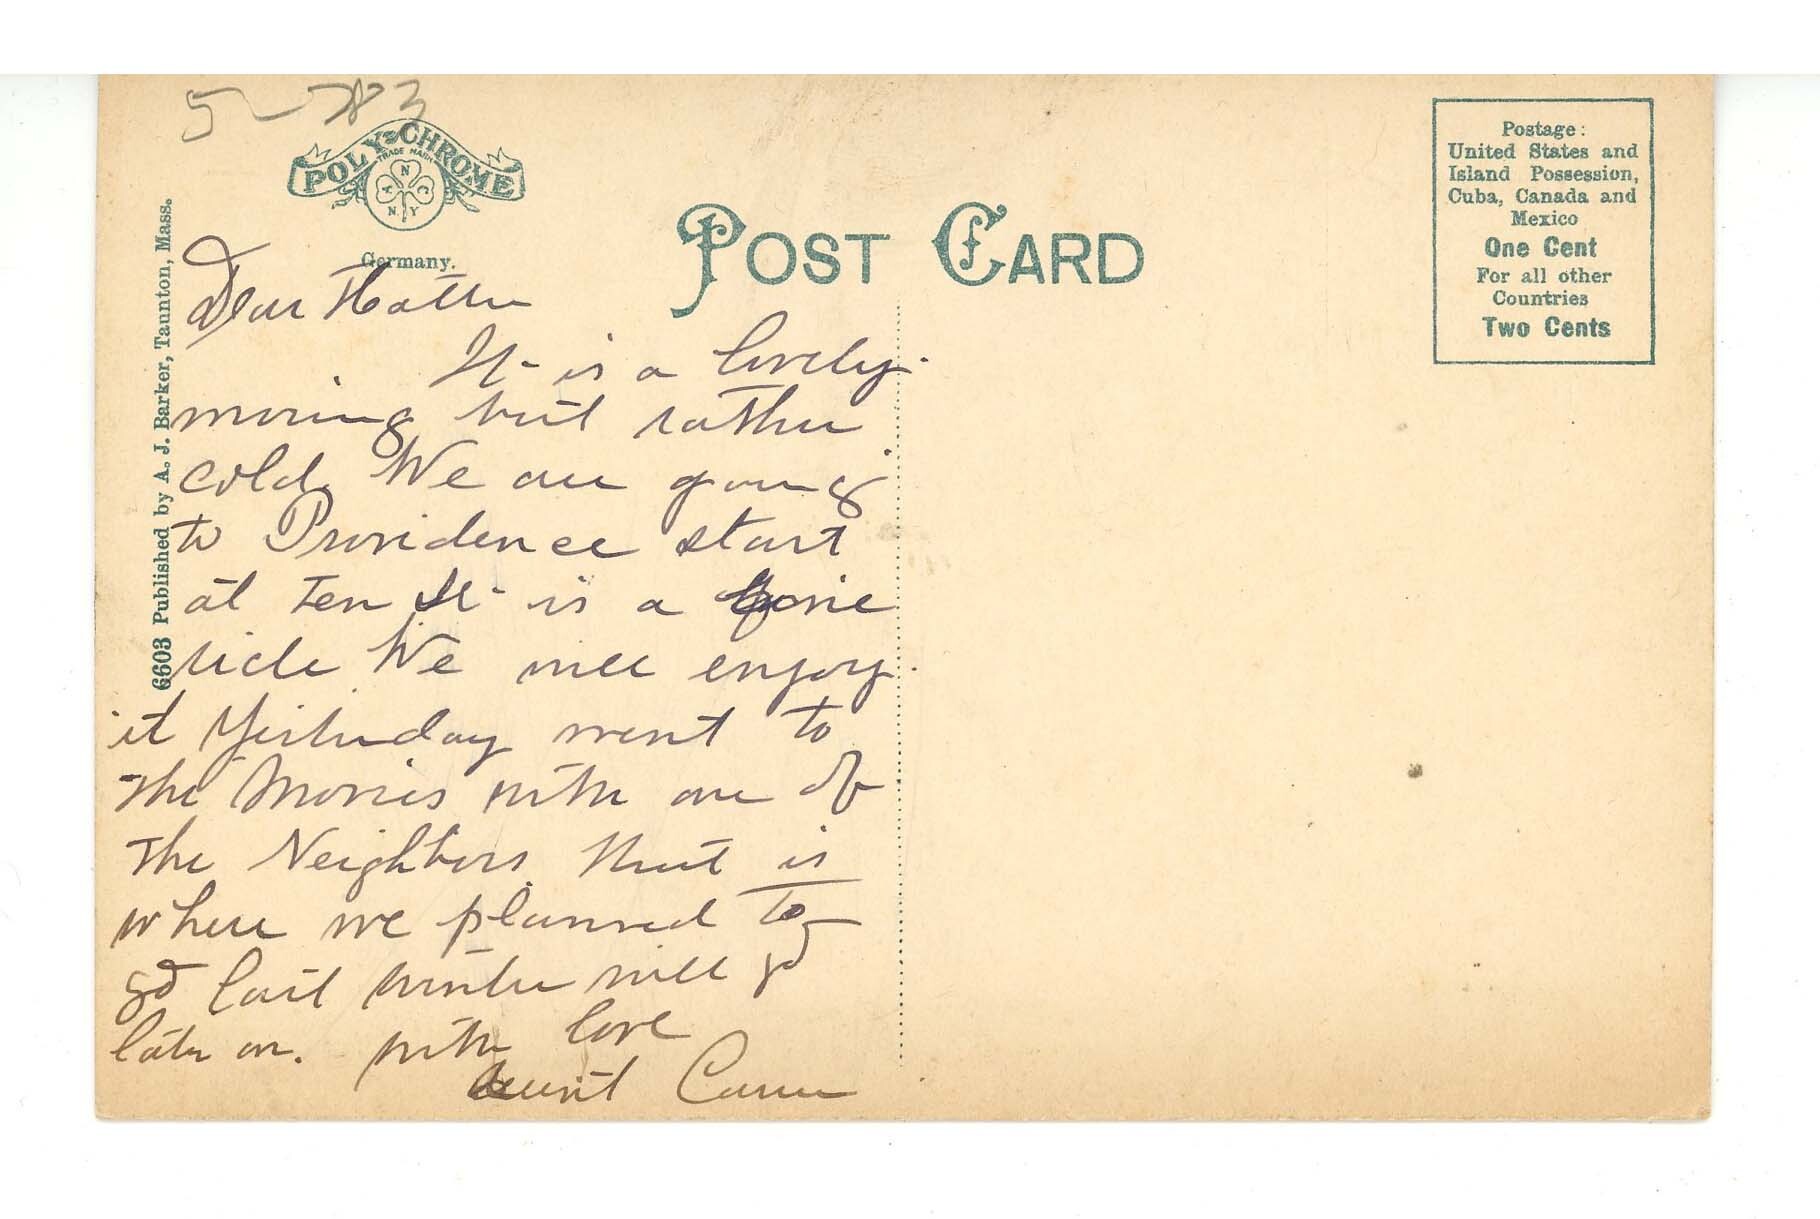 5-783
POLY-CHROME
TRADE MARK
A N C
N Y
Germany.
6603 Published by A. J. Barker, Taunton, Mass.
POST CARD
Postage:
United States and
Island Possession,
Cuba, Canada and
Mexico
One Cent
For all other
Countries
Two Cents
Dear Hattie
It is a lovely
moring but rather
cold. We are going
to Providence start
at Ten It is a fine
ride We will enjoy
it Yesterday went to
the Movies with one of
the Neighbors that is
where we planned to
go last winter will go
later on. with love
Aunt Carrie